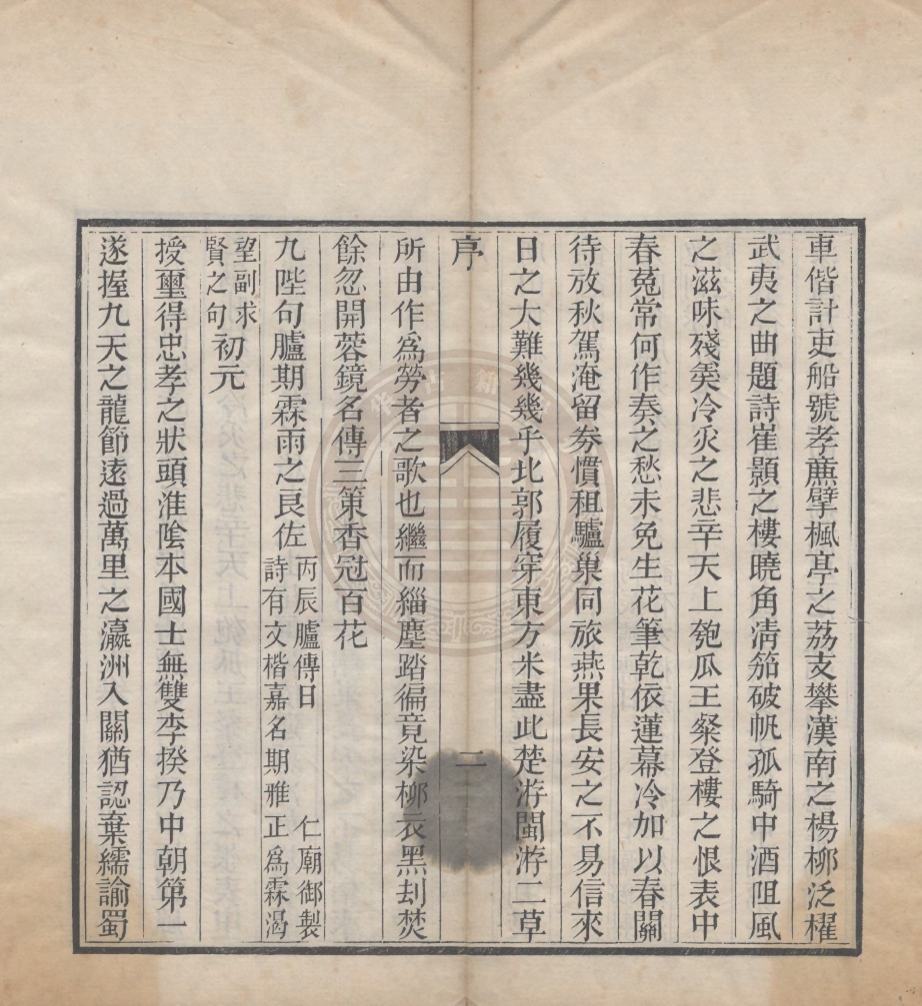 車偕計吏船號孝廉擘楓亭之荔支攀漢南之楊柳泛櫂
武夷之曲題詩崔顥之樓曉角淸笳破帆孤騎中酒阻風
之滋味殘羮冷炙之悲辛天上匏瓜王粲登樓之恨表中
春菟常何作奏之愁未免生花筆乾依蓮幕冷加以春闈
待放秋駕淹留劵慣租驢巢同旅燕果長安之不易信來
日之大難幾幾乎北郭履穿東方米盡此楚游閩游二草
序
二
所由作爲勞者之歌也繼而緇塵踏徧竟染柳衣黑刦焚
餘忽開蓉鏡名傳三第香冠百花
九陛句臚期霖雨之良佐丙辰臚傳日 仁廟御製
詩有文楷嘉名期雅正爲霖渴
望副求
賢之句初元
授璽得忠孝之狀頭淮陰本國士無雙李揆乃中朝第一
遂握九天之龍節遠過萬里之瀛洲入關猶認棄繻諭蜀